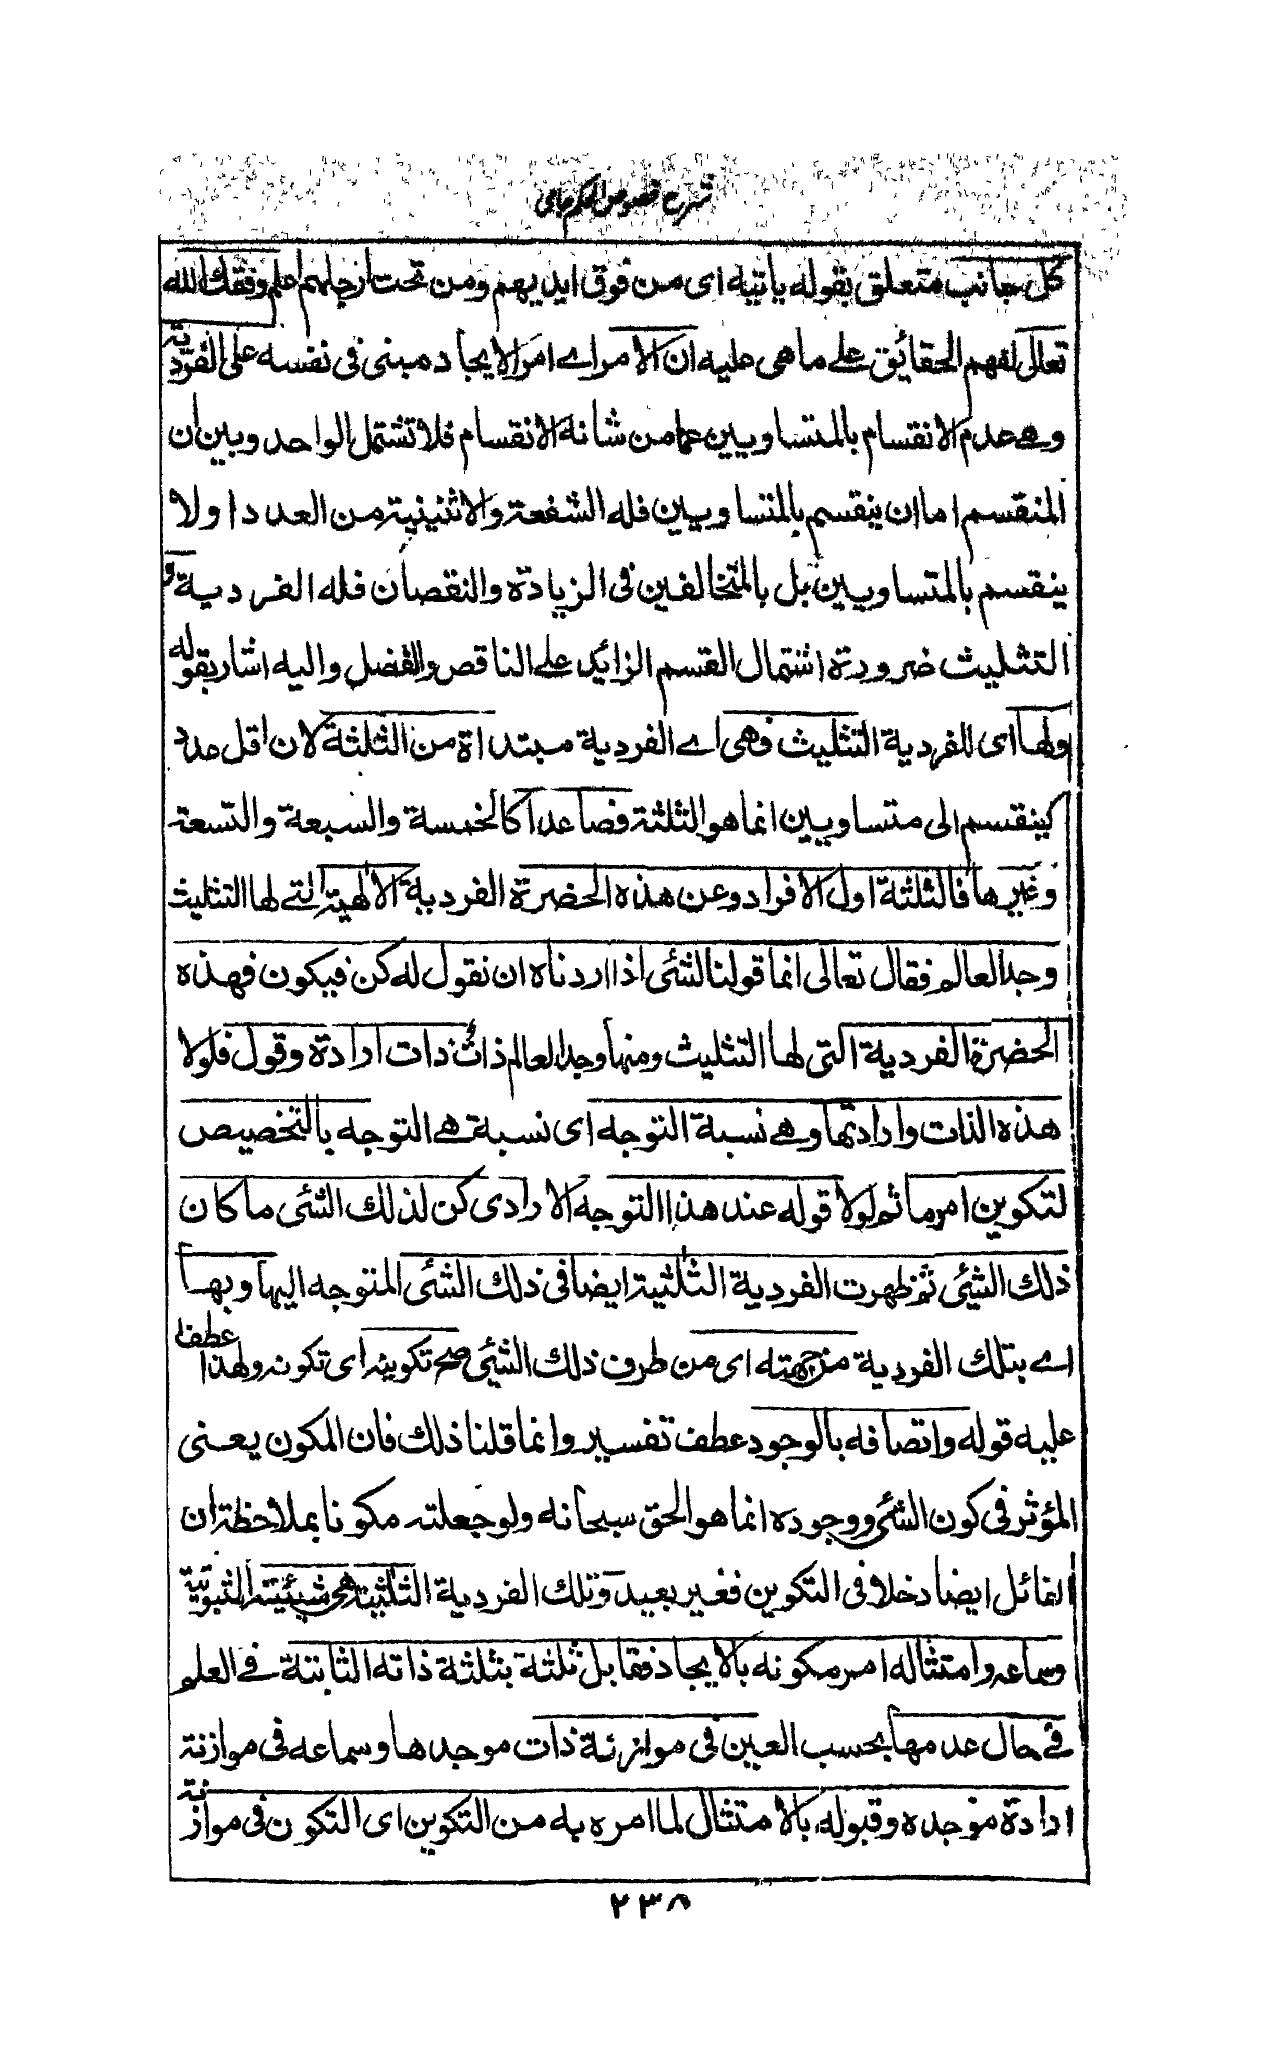 شرح فصوص الحكم جامی
كل جانب متعلق بقوله ياتيه اى من فوق ايديهم ومن تحت ارجلهم اعلم وفقك الله
تعالى لفهم الحقائق على ماهى عليه ان الامر اے امر الايجاد مبنى فى نفسه على الفردية
وهے عدم الانقسام بالمتساويين عما من شانه الانقسام فلا تشتمل الواحد وبين ان
المنقسم اما ان ينقسم بالمتساويين فله الشفعة والاثنينية من العدد او لا
ينقسم بالمتساويين بل بالمتخالفين فى الزيادة والنقصان فله الفردية و
التثليث ضرورة اشتمال القسم الزائد على الناقص والفضل واليه اشار بقوله
ولها اى للفردية التثليث فهى اے الفردية مبتداة من الثلثة لان اقل عدد
كينقسم الى متساويين انما هو الثلثة فصاعدا كالخمسة والسبعة والتسعة
وغيرها فالثلثة اول الافراد وعن هذه الحضرة الفردية الالهية التے لها التثليث
وجد العالم فقال تعالى انما قولنا لشئى اذا اردناه ان نقول له كن فيكون فهذه
الحضرة الفردية التى لها التثليث ومنها وجد العالم ذات ذات ارادة وقول فلولا
هذه الذات وارادتها وهے نسبة التوجه اى نسبة هے التوجه بالتخصيص
لتكوين امر ما ثم لولا قوله عند هذا التوجه الارادى كن لذلك الشئى ما كان
ذلك الشئى ثم ظهرت الفردية الثلثية ايضا فى ذلك الشئى المتوجه اليها وبها
اے بتلك الفردية من جهته اى من طرف ذلك الشئى صح تكوينه اى تكونه ولهذا عطف
عليه قوله واتصافه بالوجود عطف تفسير وانما قلنا ذلك فان المكون يعنى
المؤثر فى كون الشئى ووجوده انما هو الحق سبحانه ولو جعلته مكونا بملاحظة ان
القائل ايضا دخلا فى التكوين فغير بعيد وتلك الفردية الثلثية هى شيئيته الثبوتية
وسماعه وامتثاله امر مكونه بالايجاد فقابل ثلثة بثلثة ذاته الثابتة فے العلم
فے حال عدمها بحسب العين فى موازنة ذات موجدها وسماعه فى موازنة
ارادة موجده وقبوله بالامتثال لما امره به من التكوين اى التكون فى موازنة
۲۳۸